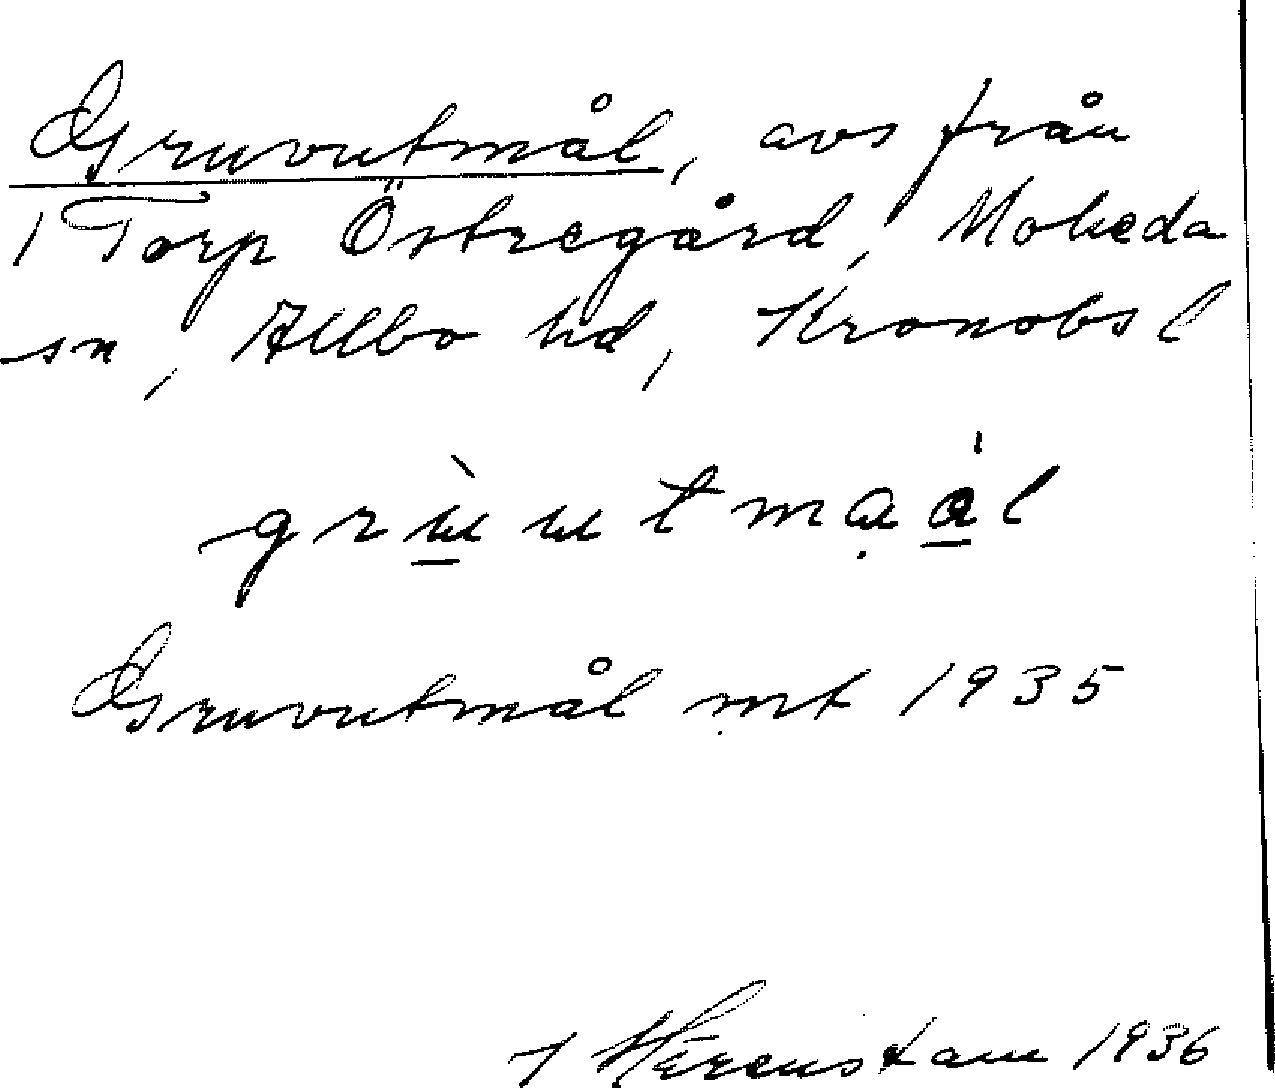 Gruvutmål, avs från
1 Torp Östregård, Moheda
sn, Allbo hd, Kronobs l
Gruvutmål mt 1935
1936